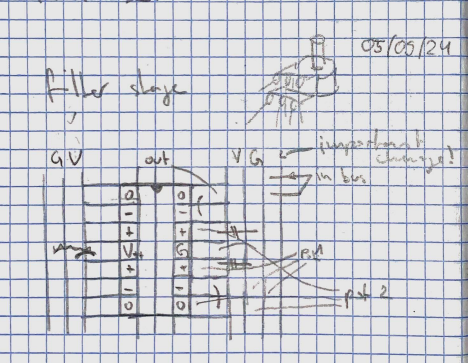 05/05/24
filter stage
G V out V G important change!
in bus
O O
- -
+ +
V+ G
+ + pot 1
- - pot 2
O O